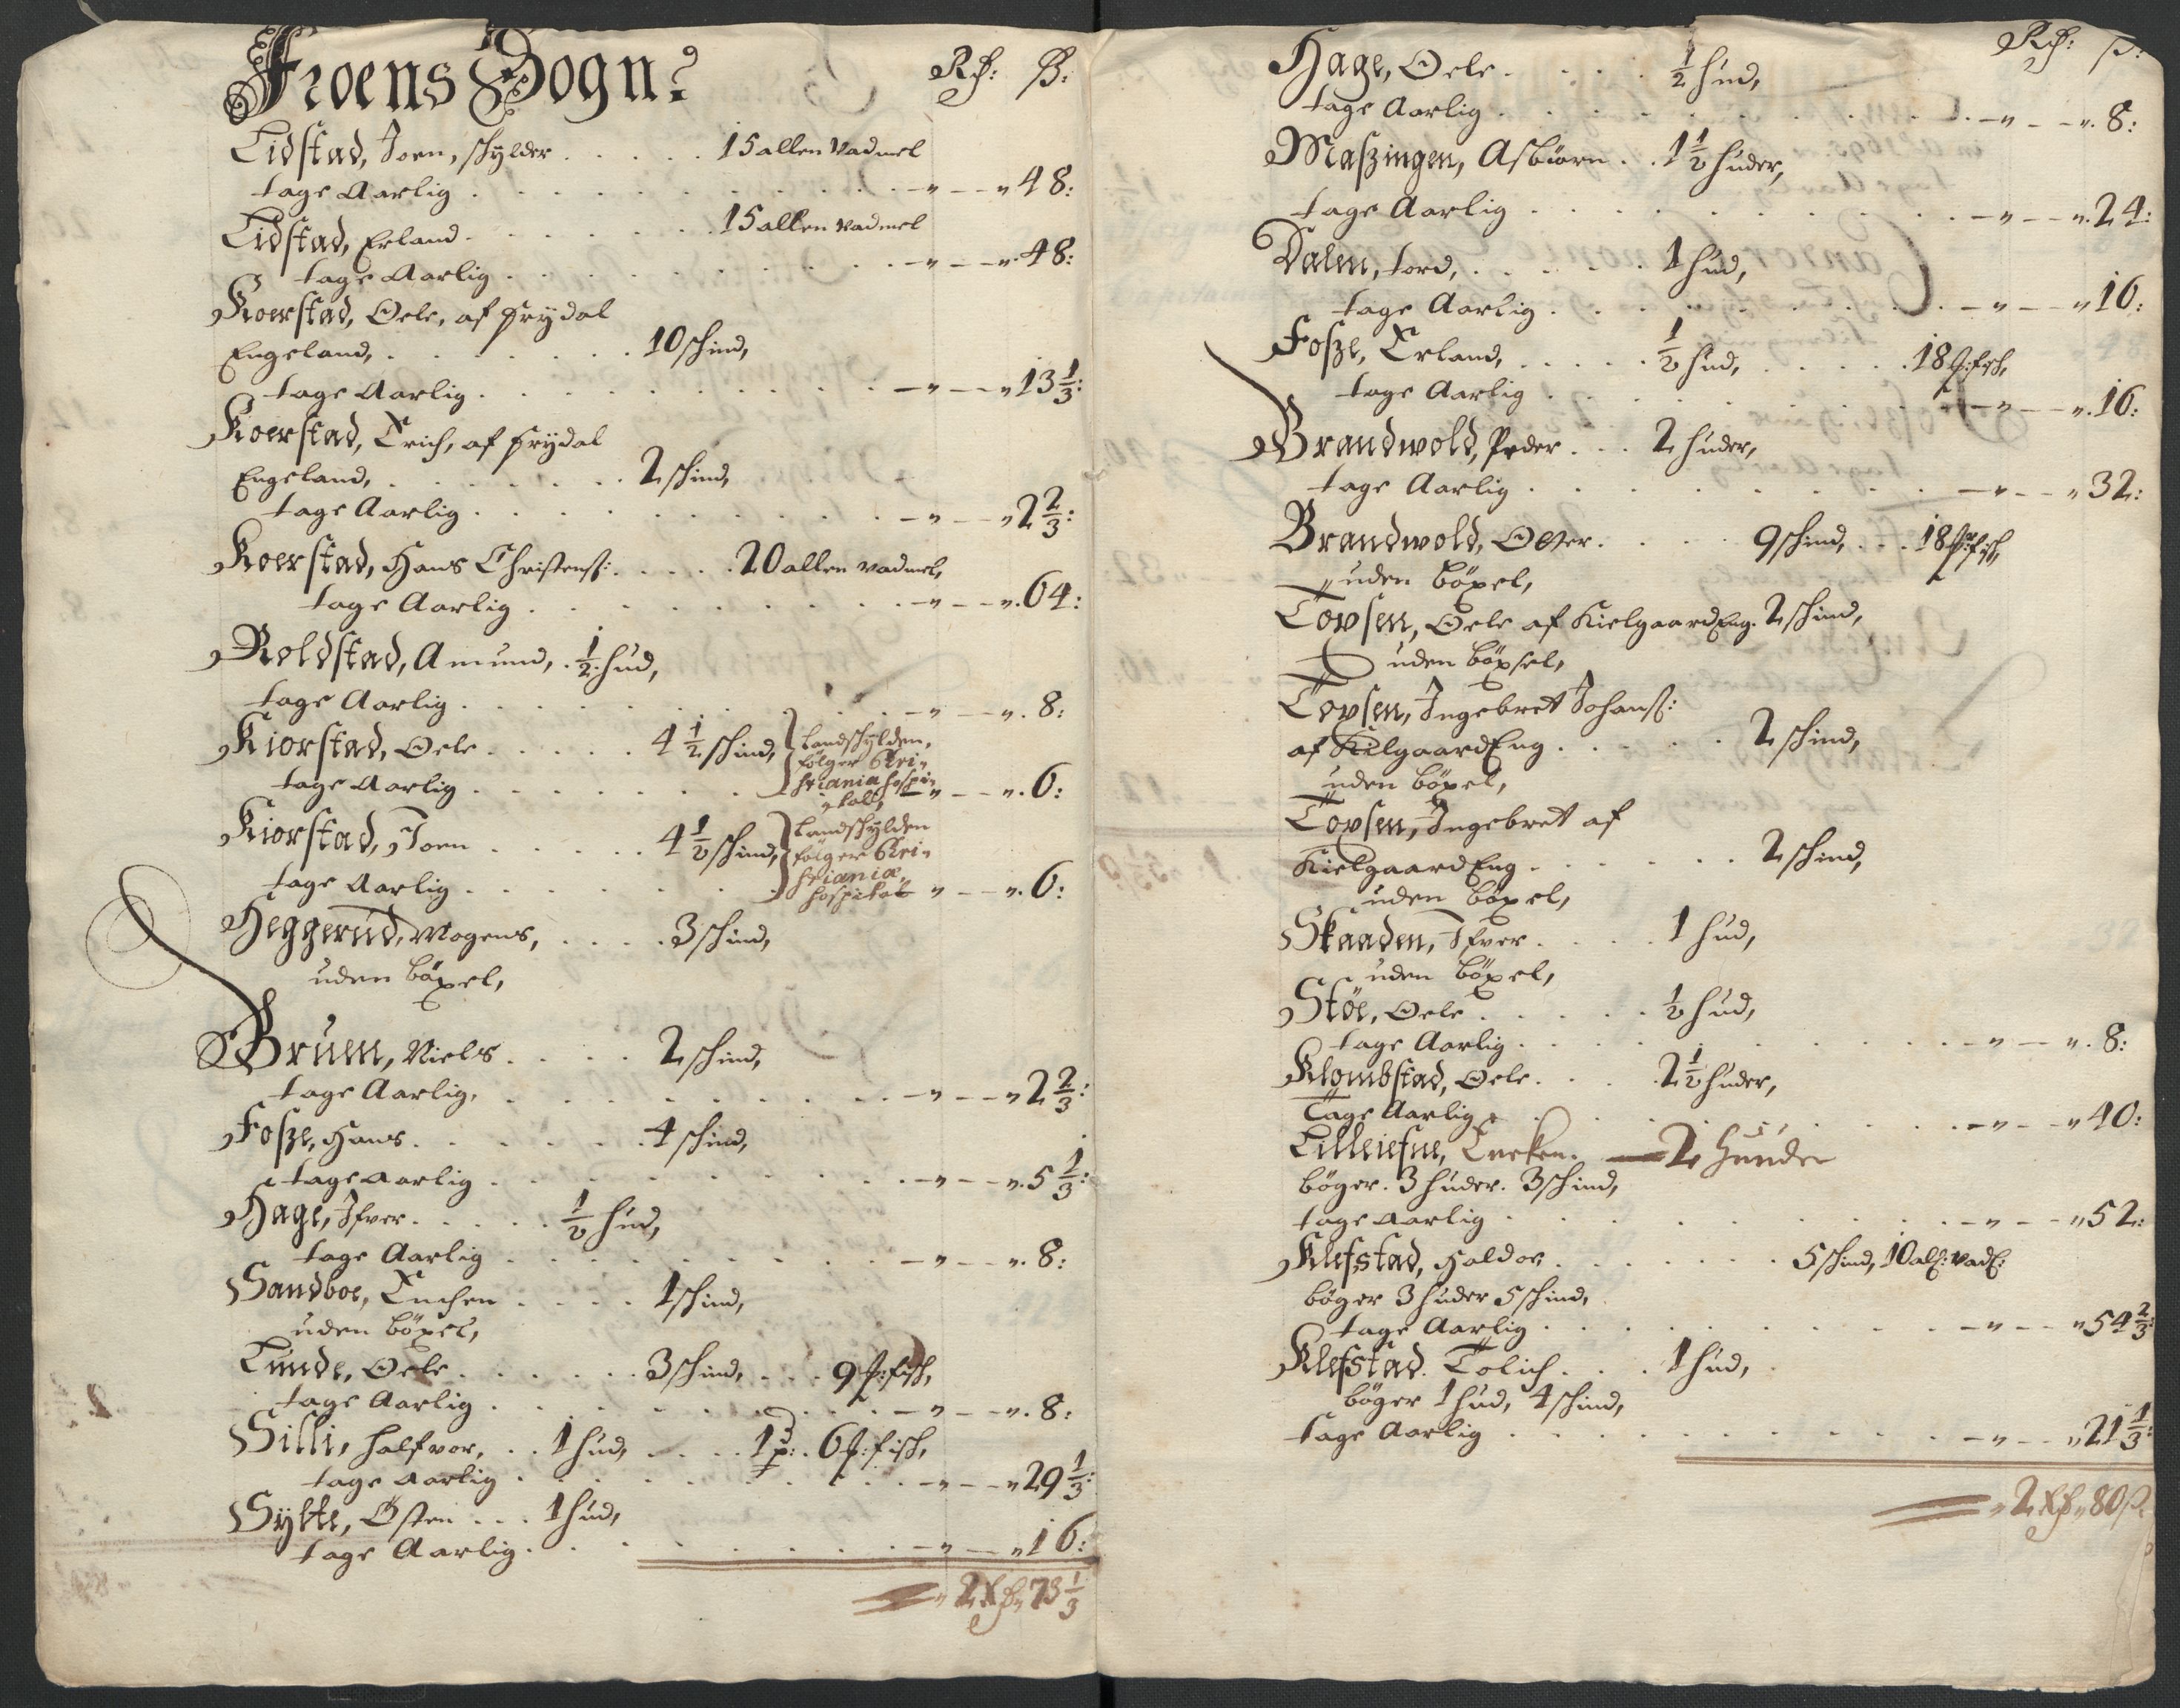 Froens Sogn: Rd: ß:
Lidstad, Joen, skylder . . . . . 15 allen vadmel
tage Aarlig . . . — " — — " 48:
Lidstad, Erland . . . . . . 15 allen vadmel
tage Aarlig . . . — " — — ". 48:
Koerstad, Oele, af Frydal
Engeland, . . . . . . . 10 schind,
tage Aarlig . . . — " — — " 13 1/3:
Koerstad, Erich, af Frydal
Engeland, . . . . . . . 2 schind,
tage Aarlig . . . — " — — " 2 2/3:
Koerstad, Hans Christens: . . . . 20 allen vadmel,
tage Aarlig . . . — " — — ". 64:
Roldstad, Amund, . 1/2. hud,
tage Aarlig . . . — " — — ". 8:
Kiorstad, Oele . . . . . 4 1/2 schind, Landschylden,
følger Chri-
stiania hospi-
tall,
tage Aarlig . . . — " — — ". 6:
Kiorstad, Joen . . . . . 4 1/2 schind, Landschylden
følger Chri-
stianiæ,
hospital
tage Aarlig . . . " — — ". 6:
Heggerud, Mogens, . . . . 3 schind,
uden böxel,
Bruun, Niels . . . . 2 schind,
tage Aarlig, . . . — " — — " 2 2/3:
Fosze, Hans . . . . . . 4 schind,
tage aarlig . . . — " — — ". 5 1/3:
Hage, Ifver . . . . . 1/2 hud,
tage Aarlig . . . — " — — ". 8:
Sandboe, Enchen . . . . 1 schind,
uden böxel,
Lunde, Oele . . . . . . 3 schind, . . . 9 ℔: fisch,
tage Aarlig . . . — " — — ". 8:
Silli, Halfvor, . . 1 hud, . . . . 1 p: . 6 ℔: fisch,
tage aarlig . . . — " — — " 29 1/3:
Sylte, Østen . . . 1 hud,
tage Aarlig . . . — " — — " 16:
" 2 Rd " 73 1/3
Rd: ß:
Hage, Oele . . . . . 1/2 hud,
tage Aarlig . . . — " — — ". 8:
Maszingen, Asbiørn . . 1 1/2 huder,
tage Aarlig . . . — " — — ". 24:
Dalen, tord, . . . . . . 1 hud,
tage Aarlig . . . — " — — " 16:
Fosze, Erland, . . . . . 1/2 hud, . . . . . 18 ℔: fisch,
tage Aarlig . . . — " — — ". 16:
Brandwold, Peder . . . 2 huder,
tage Aarlig . . . — " — — " 32:
Brandwold, Oster . . . . 9 schind, . . . 18 ℔: fisch,
uden böxel,
Tovsen, Oele af Kielgaard Eng. 2 schind,
uden böxsel,
Tovsen, Ingebret Johans:
af Kilgaard Eng . . . . . 2 schind,
uden böxel,
Tovsen, Ingebret af
Kielgaard Eng . . . . . . 2 schind,
uden böxel,
Skaaden, Ifver . . . . 1 hud,
uden böxel,
Stöe, Oele . . . . . 1/2 hud,
tage Aarlig . . . — " — ". 8:
Klombstad, Oele . . . . 2 1/2 huder,
Tage Aarlig . . . — " — " 40:
Lilleiefne, — 2 huuder
böger. 3 huder. 3 schind,
tage aarlig . . . — " — — " 52:
Klefstad, Haldor . . . . . . 5 schind, 10 all: vad:
böger 3 huder 5 schind,
tage Aarlig . . . — " — — " 54 2/3:
Klefstad. Tolich . . . 1 hud,
böger 1 hud, 4 schind,
tage Aarlig . . . — " — — " 21 1/3:
" 2 Rd " 80 ß